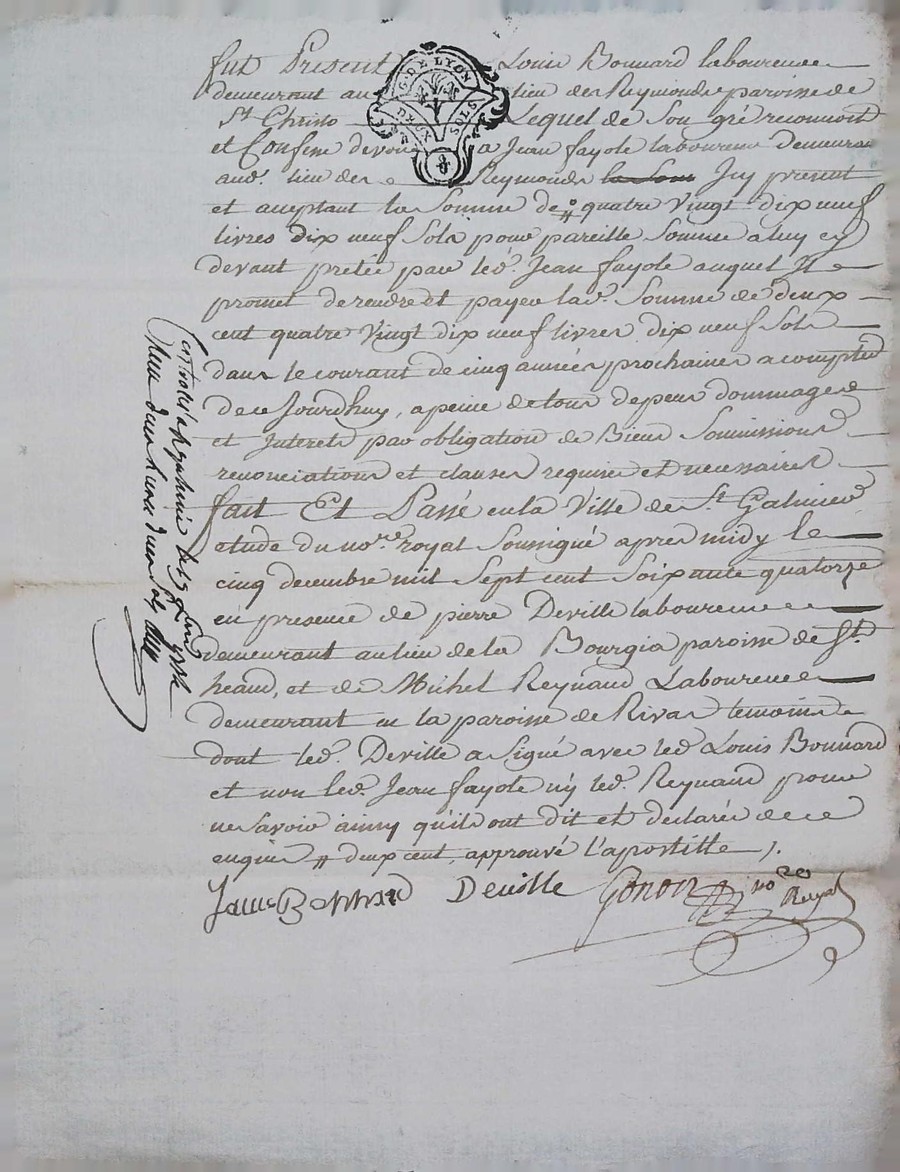 fut Present Louis Bonnard laboureur
demeurant au lieu des Reymonds paroisse de
St. Christo Lequel de Son gré reconnoit
et Confesse devoir a Jean fayole laboureur demeurant
aud. lieu des Reymonds la Som Icy present
et aceptant la Somme de # quatre Vingt dix neuf
livres dix neuf Sols pour pareille Somme a luy cy
devant pretée par led. Jean fayole auquel Il
promet de rendre et payer lad. Somme de deux
cent quatre Vingt dix neuf livres dix neuf Sols
dans le courant de cinq années prochaines a compter
de ce Jourdhuy, a peine de tous depens dommages
et Interets par obligation de Biens Soumissions
renonciations et clauses requises et necessaires
fait Et Passé en la Ville de St Galmier
etude du nore. royal Soussigné apres midy le
cinq decembre mil Sept cent Soixante quatorze
en presence de pierre Deville laboureur
demeurant au lieu de la Bourgia paroisse de St.
heand, et de Michel Reynaud Laboureur
demeurant en la paroisse de Rivas temoins
dont led. Deville a Signé avec led. Louis Bonnard
et non led. Jean fayole ny led. Reynaud pour
ne Savoir ainsy qu'ils ont dit et declaré de ce
enquis # deux cent, approuvé l'apostille
Bonnard Deville Gonon no re Royal
G. DE LYON
SOLS